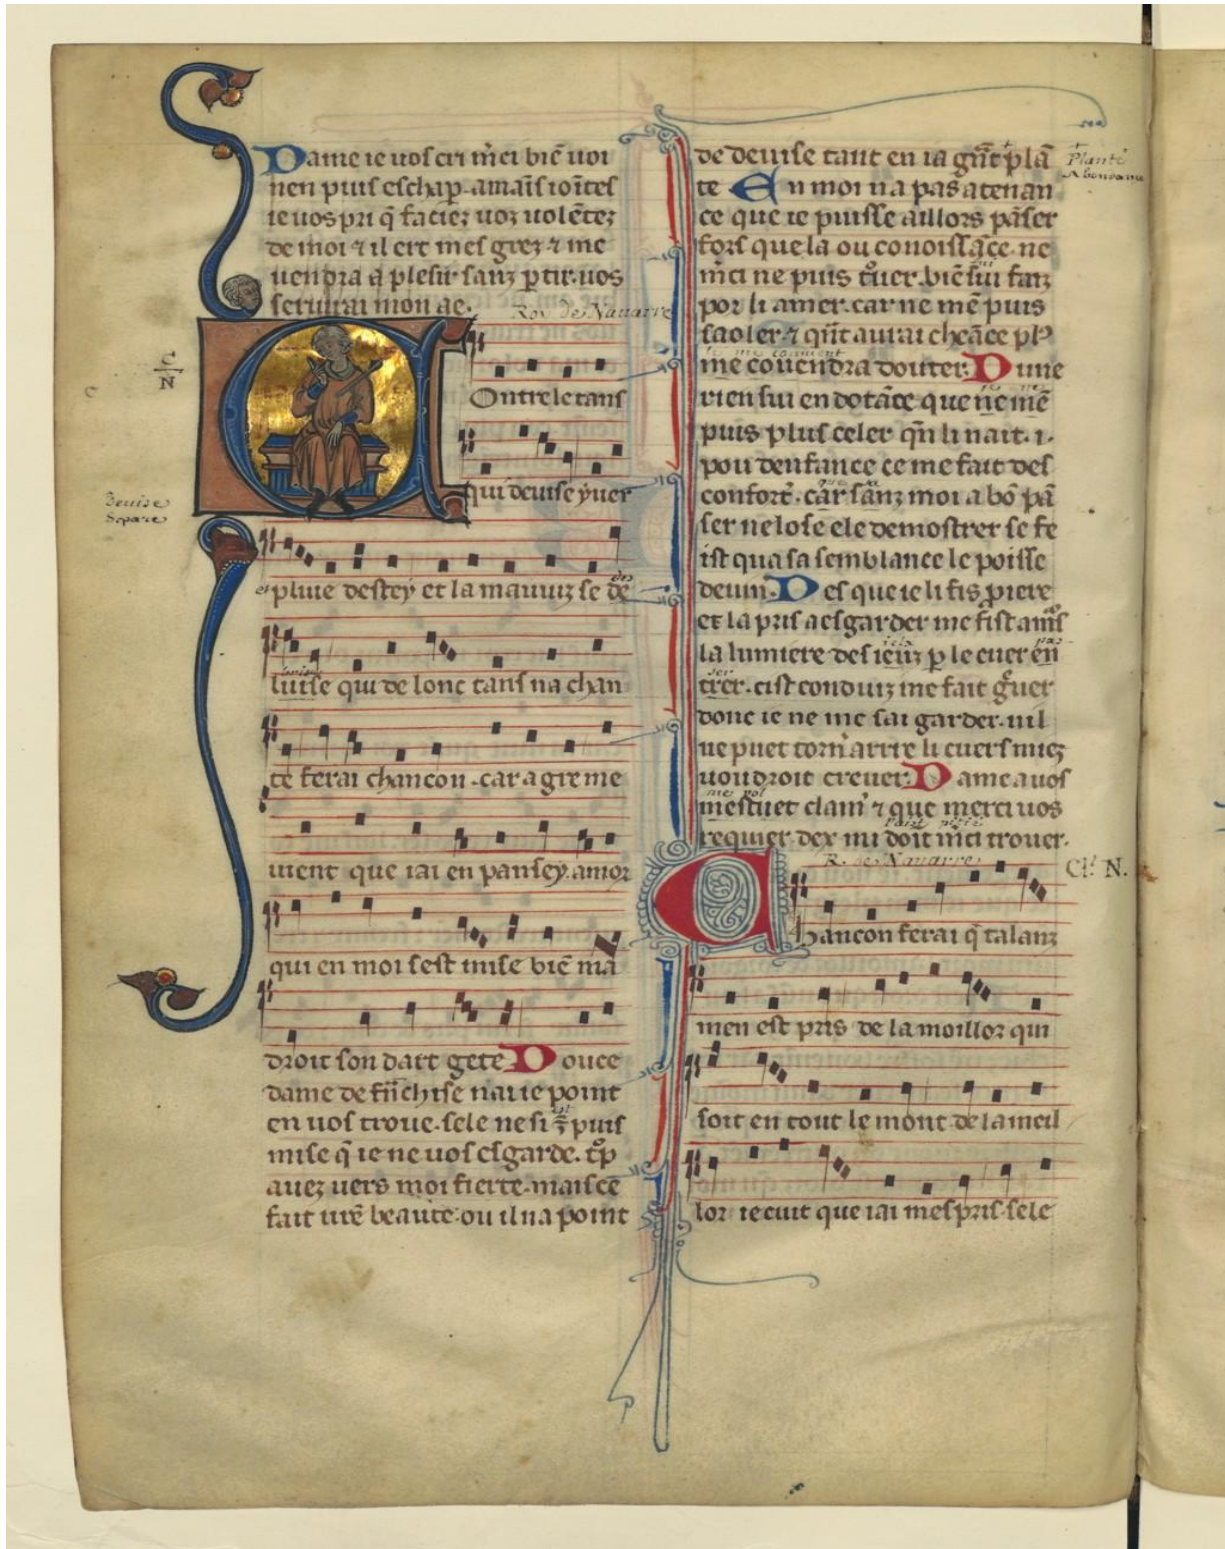 Dame ie uos cri m̄ci biē uoi
nen puis eschap̄ amaīs ioītes
ie uos pri q̄ faciez uoz uolētez
de moi ⁊ il ert mes grez ⁊ me
uendra a plesir sanz ꝑtir uos
seruirai mon ae.
Roy de Nauarre
C
N
Contre le tans
qui deuise yuer
Deuise
Separe
et pluie destey et la mauuiz se de
luise qui de lonc tans na chan
te ferai chancon. car a gre me
uient que iai en pansey. amor
qui en moi sest mise biē ma
droit son dart gete Douce
dame de frāchise nai ie point
en uos troue. sele ne si puis
mise q̄ ie ne uos esgarde. tͦp
auez uers moi fierte. mais ce
fait urē beaute. ou il na point
de deuise tant en ia grāt plā
Planté
Abondance
te En moi na pas atenan
ce que ie puisse aillors pāser
fors que la ou conoissāce. ne
m̄ci ne puis tͦuer. biē fui faiz
por li amer. car ne mē puis
saoler. ⁊ qn̄t aurai cheāce plꝰ
me couendra douter. Dune
rien sui en dotāce que ne mē
puis plus celer qn̄ li nait .i.
pou denfance ce me fait des
confort. car sanz moi a bō pā
ser ne lose ele demostrer se fe
ist qua sa semblance le poisse
deuin. Des que ie li fis p̄iere
et la pris a esgarder me fist amͦs
la lumiere des ieuz ꝑ le cuer en
trer. cist conduiz me fait gr̄uer
donc ie ne me sai garder. nil
ne puet torn̄ arrire li cuers miez
uoudroit creuer. Dame a uos
mestuet clam̄ ⁊ que merci uos
requier dex mi doit m̄ci trouer.
R. de Nauarre
Ch. N.
Chancon ferai q̄ talanz
men est pris de la moillor qui
soit en tout le mont de la meil
lor ie cuit que iai mespris. sele